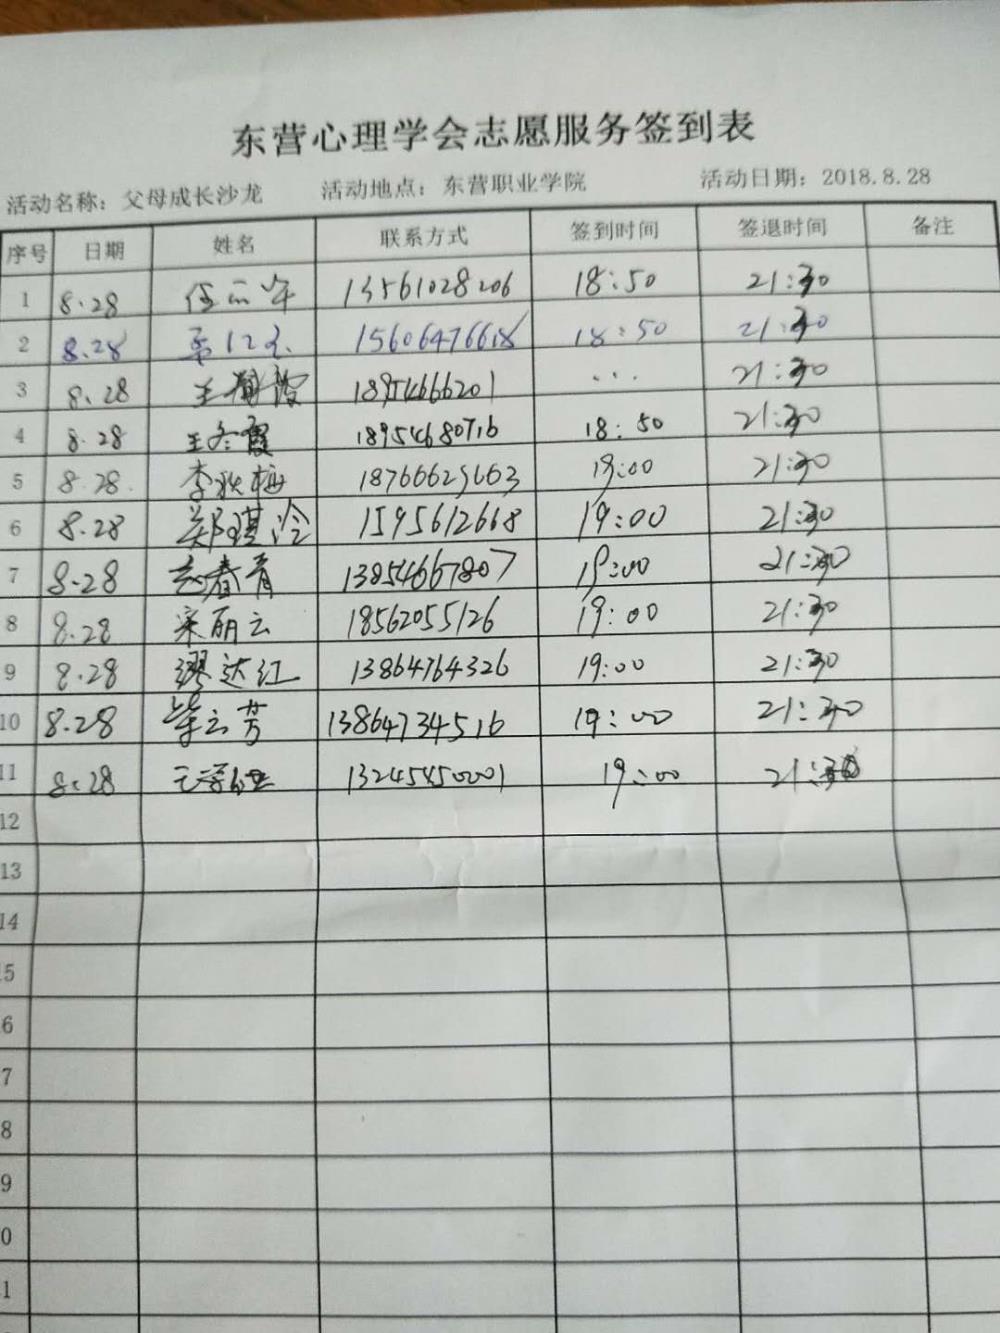 东营心理学会志愿服务签到表
活动名称：父母成长沙龙 活动地点：东营职业学院 活动日期：2018.8.28
序号 日期 姓名 联系方式 签到时间 签退时间 备注
1 8.28 13561028206 18:50 21:30
2 8.28 15606476618 18:50 21:30
3 8.28 18954666201 ... 21:30
4 8.28 王冬霞 18954680716 18:50 21:30
5 8.28. 李秋梅 19:00 21:30
6 8.28 郑琪泠 1595612668 19:00 21:30
7 8.28 春青 13854667807 19:00 21:30
8 8.28 宋丽云 18562055126 19:00 21:30
9 8.28 缪达红 13864764326 19:00 21:30
10 8.28 毕云芳 13864734516 19:00 21:30
11 8.28 13245450001 19:00 21:30
12
13
14
5
6
7
8
9
0
1